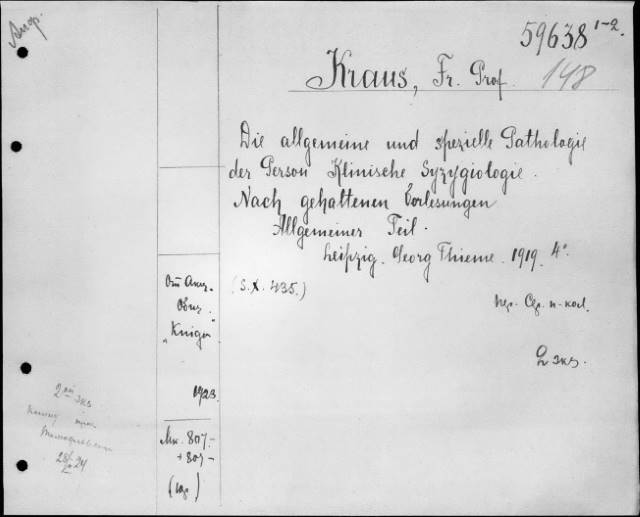 59638 1-2.
Kraus, Fr. Prof.
148
Die allgemeine und spezielle Pathologie
der Person Klinische Syzygiologie.
Nach gehaltenen Vorlesungen
Allgemeiner Teil.
Leipzig. Georg Thieme. 1919. 4°.
(S. X. 435.)
От Акц.
Общ.
"Knigа"
1923.
Мк. 807-
+ 807-
2 экз.
2ой экз
24